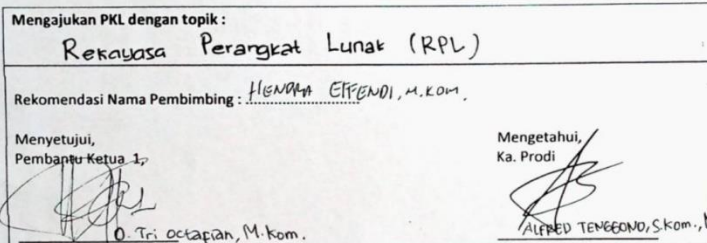 Mengajukan PKL dengan topik :
Rekayasa Perangkat Lunak (RPL)
Rekomendasi Nama Pembimbing : HENDRA EFFENDI, M.KOM.
Menyetujui,
Pembantu Ketua 1,
D. Tri Octafian, M.Kom.
Mengetahui,
Ka. Prodi
ALFRED TENGGONO, S.Kom.,